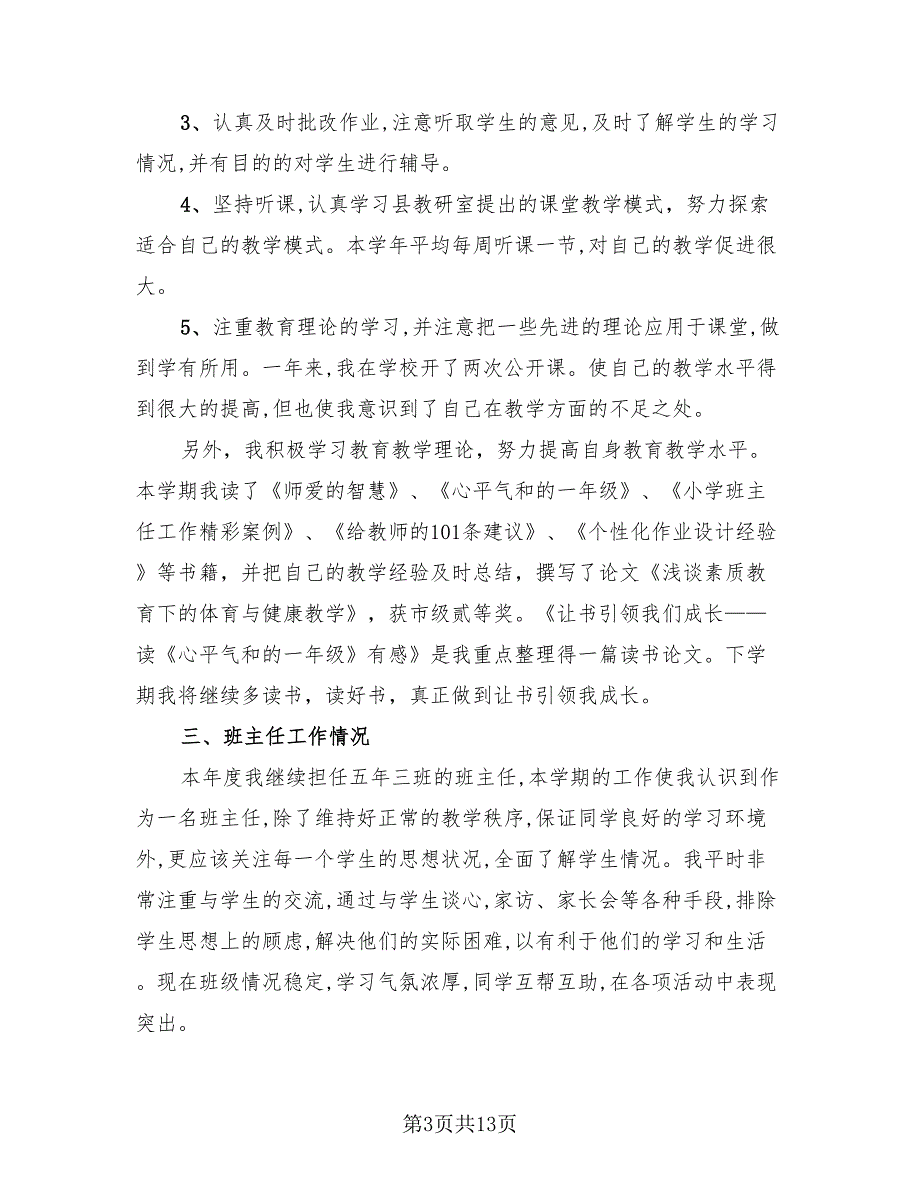 3、认真及时批改作业,注意听取学生的意见,及时了解学生的学习
情况,并有目的的对学生进行辅导。
4、坚持听课,认真学习县教研室提出的课堂教学模式，努力探索
适合自己的教学模式。本学年平均每周听课一节,对自己的教学促进很
大。
5、注重教育理论的学习,并注意把一些先进的理论应用于课堂,做
到学有所用。一年来,我在学校开了两次公开课。使自己的教学水平得
到很大的提高,但也使我意识到了自己在教学方面的不足之处。
另外，我积极学习教育教学理论，努力提高自身教育教学水平。
本学期我读了《师爱的智慧》、《心平气和的一年级》、《小学班主
任工作精彩案例》、《给教师的101条建议》、《个性化作业设计经验
》等书籍，并把自己的教学经验及时总结，撰写了论文《浅谈素质教
育下的体育与健康教学》，获市级贰等奖。《让书引领我们成长——
读《心平气和的一年级》有感》是我重点整理得一篇读书论文。下学
期我将继续多读书，读好书，真正做到让书引领我成长。
三、班主任工作情况
本年度我继续担任五年三班的班主任,本学期的工作使我认识到作
为一名班主任,除了维持好正常的教学秩序,保证同学良好的学习环境
外,更应该关注每一个学生的思想状况,全面了解学生情况。我平时非
常注重与学生的交流,通过与学生谈心,家访、家长会等各种手段,排除
学生思想上的顾虑,解决他们的实际困难,以有利于他们的学习和生活
。现在班级情况稳定,学习气氛浓厚,同学互帮互助,在各项活动中表现
突出。
第3页共13页